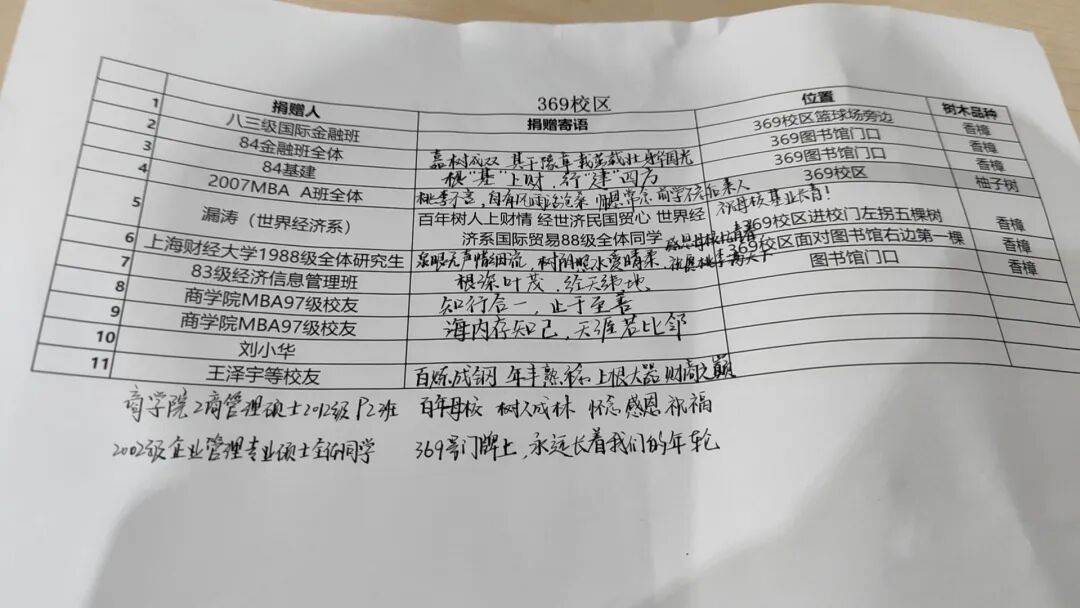 369校区
捐赠人 捐赠寄语 位置 树木品种
1 八三级国际金融班 369校区篮球场旁边 香樟
2 84金融班全体 嘉树成双 其于豫章 载芸载壮 369图书馆门口 香樟
3 84基建 根“基”上财，行“建”四方 369图书馆门口 香樟
4 2007MBA A班全体 桃李不言，师恩常念 369校区 柚子树
祝母校基业长青！
5 漏涛（世界经济系） 百年树人上财情 经世济民国贸心 世界经济系国际贸易88级全体同学 369校区进校门左拐五棵树 香樟
6 上海财经大学1988级全体研究生 泉眼无声惜细流 树阴照水爱晴柔 369校区面对图书馆右边第一棵 香樟
7 83级经济信息管理班 根深叶茂，经天纬地 图书馆门口 香樟
8 商学院MBA97级校友 知行合一，止于至善
9 商学院MBA97级校友 海内存知己，天涯若比邻
10 刘小华
11 王泽宇等校友 百炼成钢 年丰熟稔 上根大器 财高
商学院工商管理硕士2012级P2班 百年母校 树人成林 怀念感恩祝福
2002级企业管理专业硕士全体同学 369号门牌上，永远长着我们的年轮